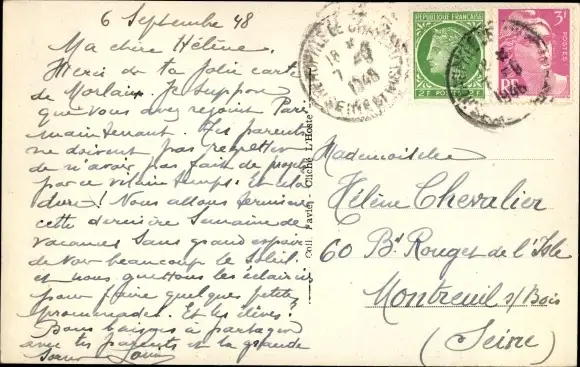 6 Septembre 48
Ma chère Hélène.
Merci de ta jolie carte
de Morlaix. Je suppose
que vous avez rejoint Paris
maintenant. Tes parents
ne doivent pas regretter
de n'avoir pas fait de
par ce vilain temps. Et cela
dure! Nous allons terminer
cette dernière Semaine de
vacances sans grand espoir
de voir beaucoup le soleil.
et nous guettons les éclaircies
pour faire quelques petites
promenades. Et les élèves!
Bons baisers à partager
avec tes parents et ta grande
soeur
Coll. Cliché L'Hoste
REPUBLIQUE FRANÇAISE
2F 2F
3F
POSTES
RF
18
7 - 9
1948
SEINE
1948
Mademoiselle
Hélène Chevalier
60 Bd Rouget de l'Isle
Montreuil s/Bois
(Seine)